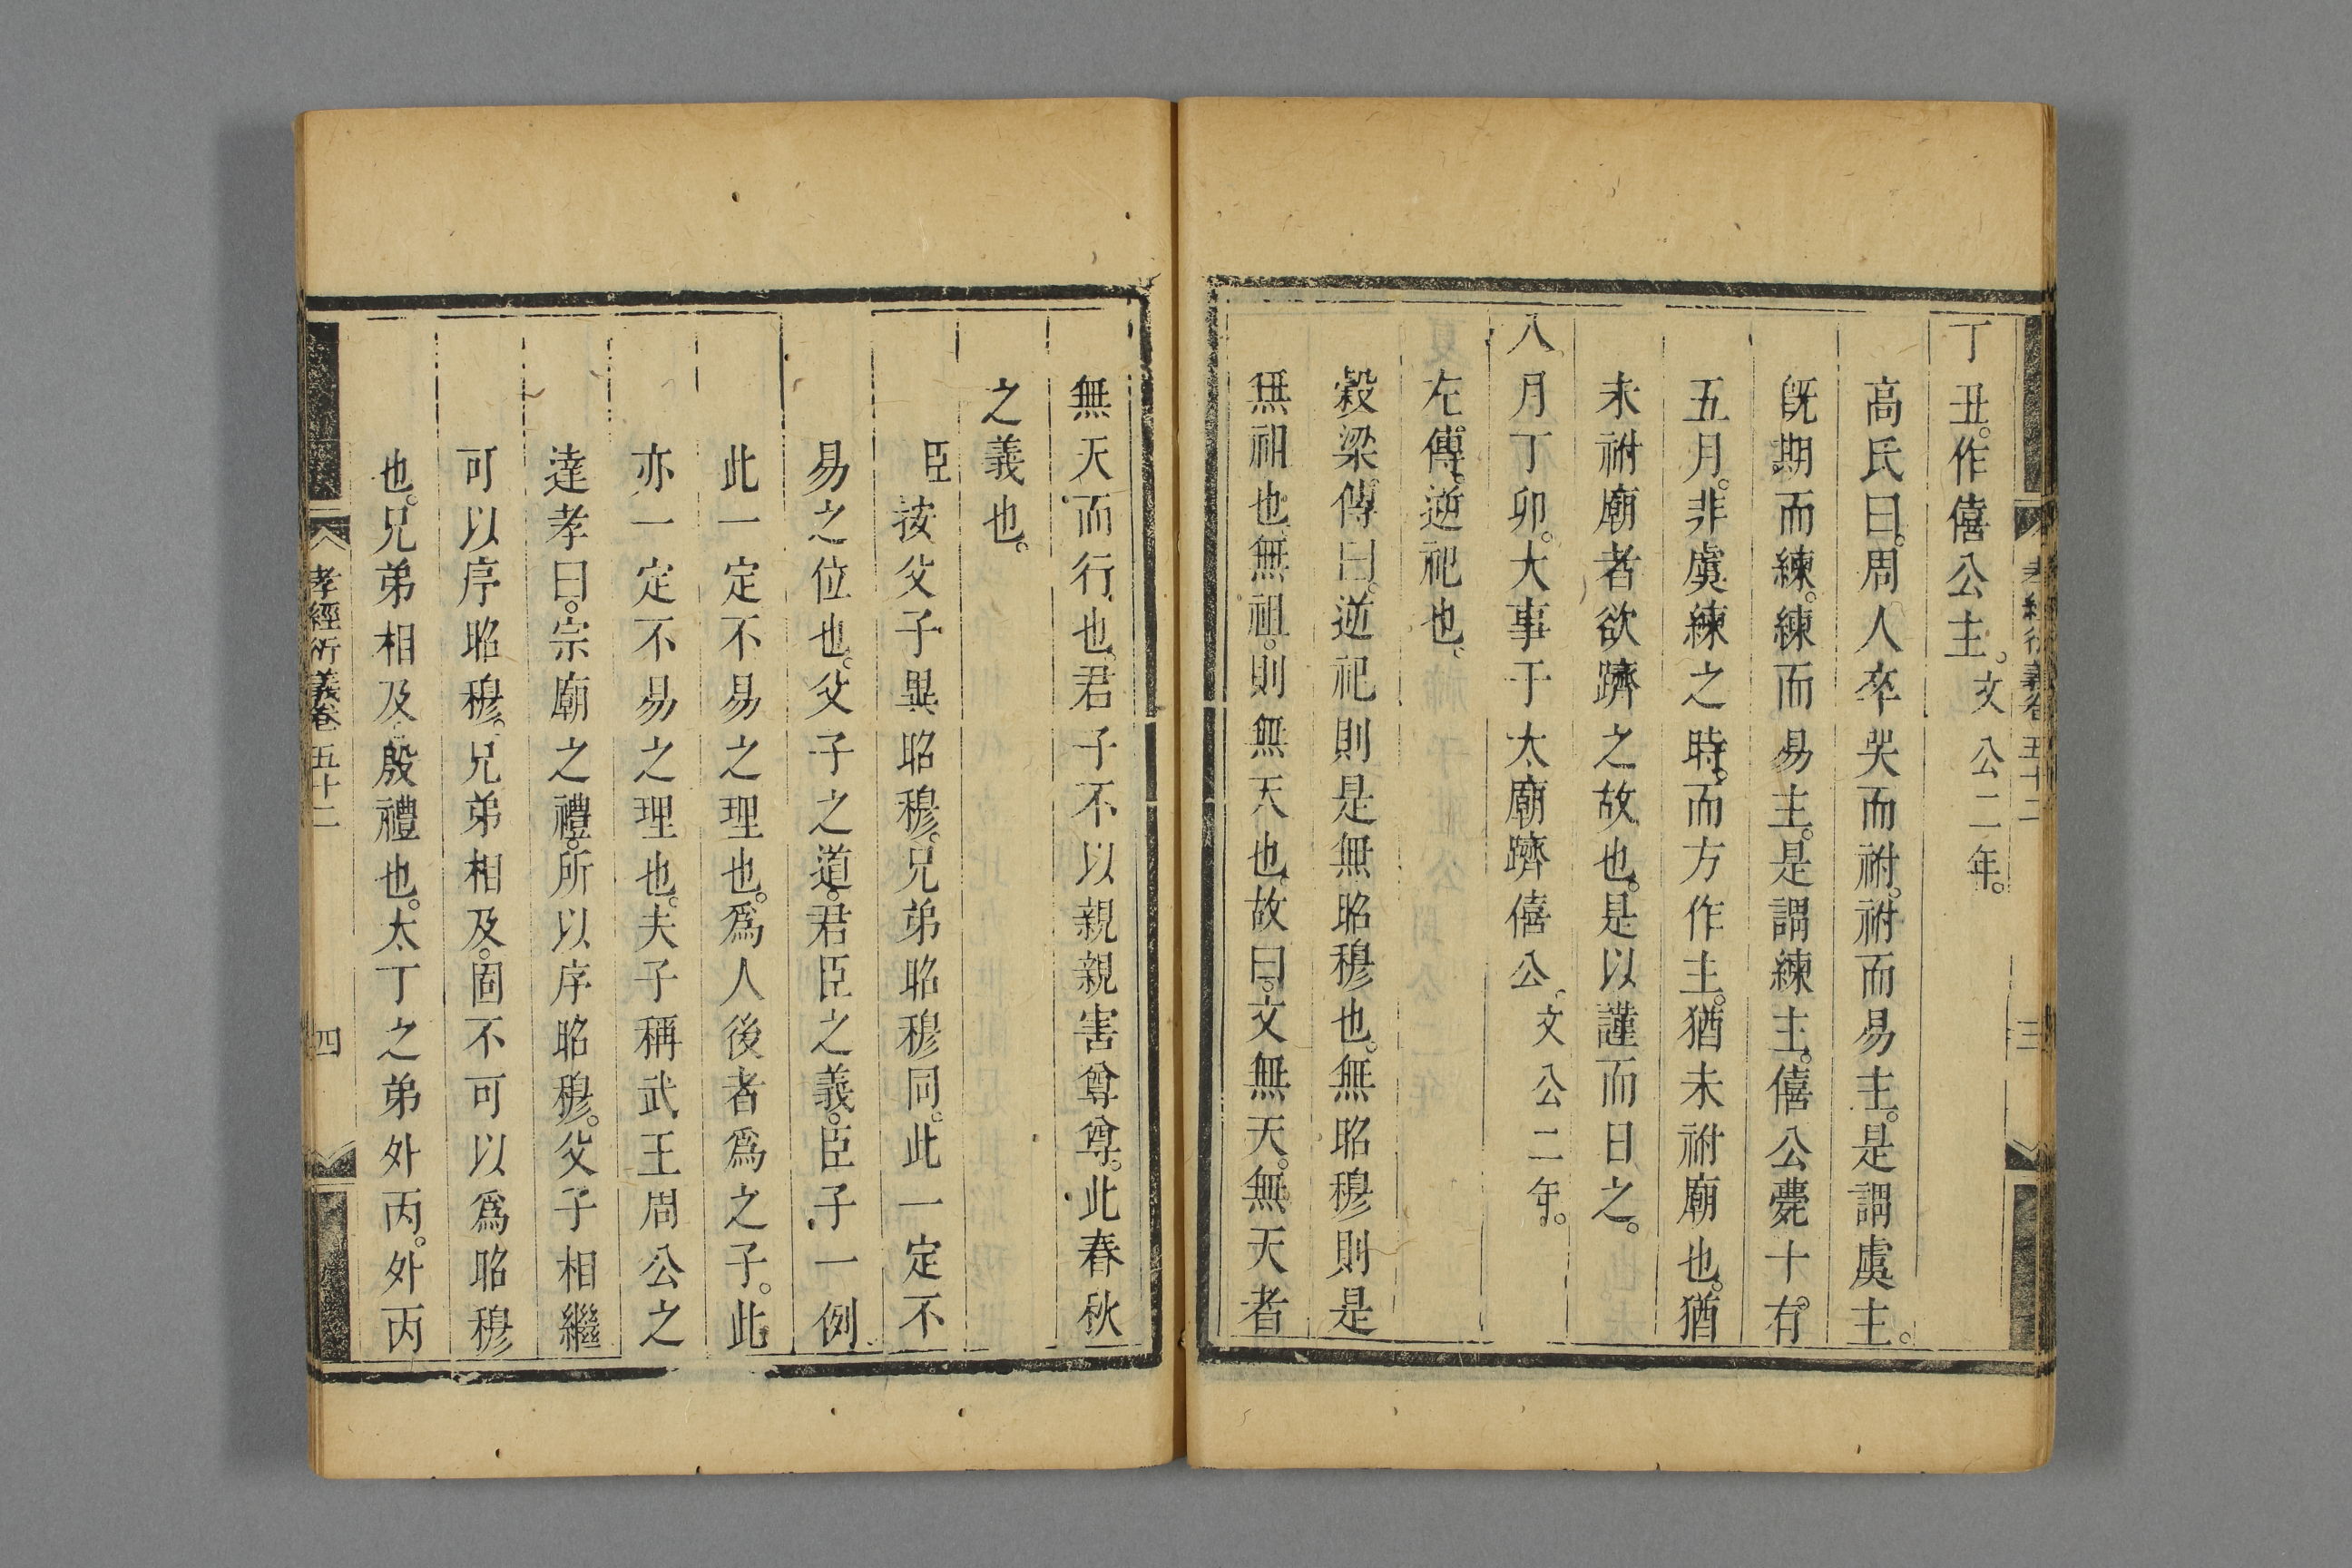 孝經衍義卷五十二 三
丁丑。作僖公主。文公二年。
高氏曰。周人卒哭而祔。祔而易主。是謂虞主。
旣期而練。練而易主。是謂練主。僖公薨十有
五月。非虞練之時。而方作主。猶未祔廟也。猶
未祔廟者欲躋之故也。是以謹而日之。
八月丁卯。大事于太廟躋僖公。文公二年。
左傳。逆祀也。
穀梁傳曰。逆祀則是無昭穆也。無昭穆則是
無祖也。無祖。則無天也。故曰。文無天。無天者
無天而行也。君子不以親親害尊尊。此春秋
之義也。
臣按父子異昭穆。兄弟昭穆同。此一定不
易之位也。父子之道。君臣之義。臣子一例
此一定不易之理也。爲人後者爲之子。此
亦一定不易之理也。夫子稱武王周公之
達孝曰。宗廟之禮。所以序昭穆。父子相繼
可以序昭穆。兄弟相及。固不可以爲昭穆
也。兄弟相及。殷禮也。太丁之弟外丙。外丙
孝經衍義卷五十二 四